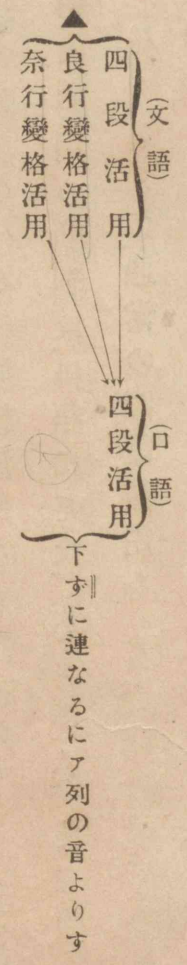 (文語)
▲
四段活用
良行變格活用
奈行變格活用
(口語)
四段活用
下ずに連なるにア列の音よりす